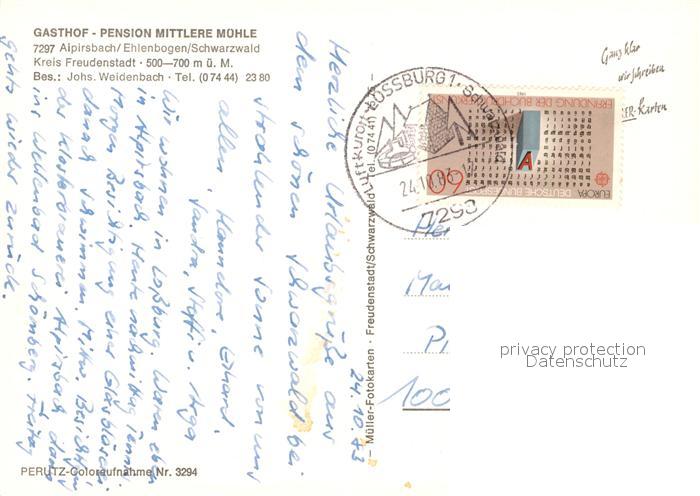 GASTHOF - PENSION MITTLERE MÜHLE
7297 Alpirsbach/Ehlenbogen/Schwarzwald
Kreis Freudenstadt · 500—700 m ü. M.
Bes.: Johs. Weidenbach · Tel. (0 74 44) 23 80
Herzliche Urlaubsgrüße aus
dem schönen Schwarzwald bei
strahlender Sonne von uns
allen, Hannelore, Erhard,
Sandra, Steffi u. Inga
Wir wohnen in Loßburg. Waren eben
in Alpirsbach. Heute nachmittag Tennis
Morgen Besichtigung einer Glasbläserei
danach Schwimmen. Mittw. Besichtigung
der Klosterbrauerei Alpirsbach dann
ins Wellenbad Schömberg. Freitag
gehts wieder zurück.
24.10.83
PERUTZ-Coloraufnahme Nr. 3294
Müller-Fotokarten · Freudenstadt/Schwarzwald · Tel. (0 74 41)
Ganz klar
wir schreiben
KER-Karten
LOSSBURG 1 · Schwarzwald
Luftkurort
24.10.83
7298
ERFINDUNG DER BUCHDRUCKERKUNST
DEUTSCHE BUNDESPOST
EUROPA
60
A
100
privacy protection
Datenschutz